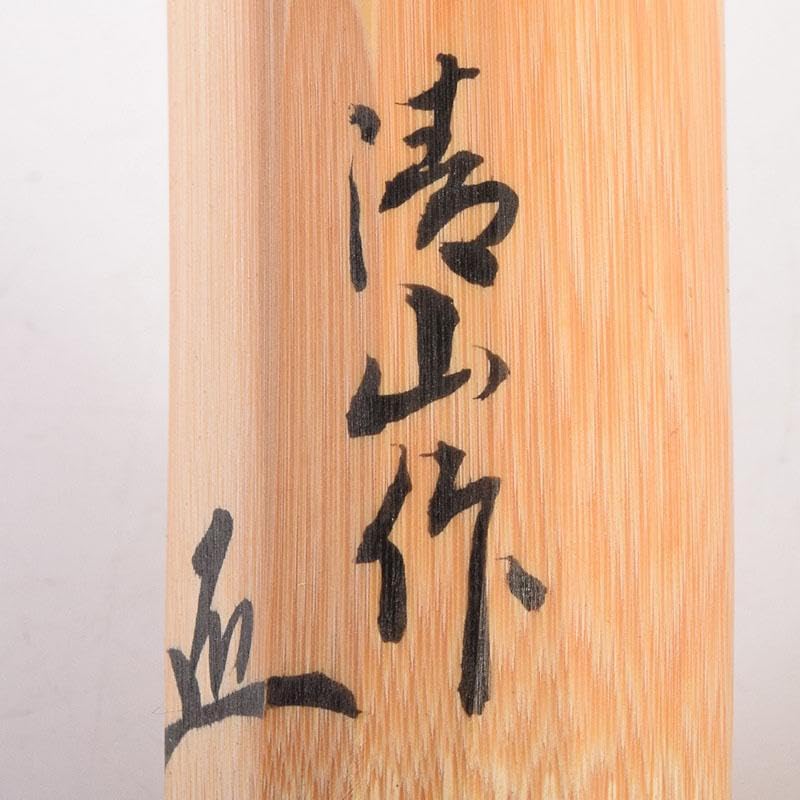 清山作